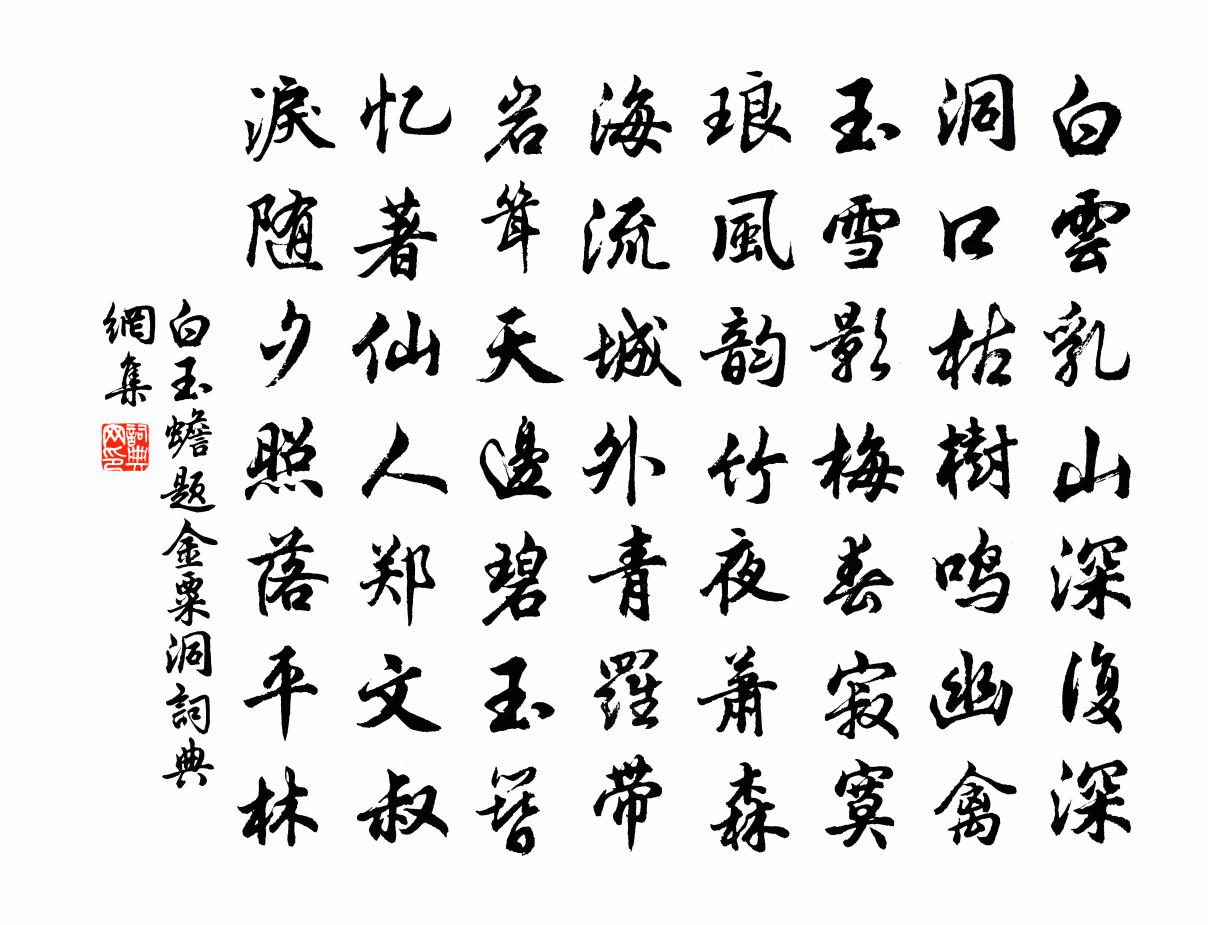 白雲乳山深復深
洞口枯樹鸣幽禽
玉雪影梅春寂寞
琅風韵竹夜蕭森
海流城外青羅带
岩耸天邊碧玉簪
忆著仙人郑文叔
淚随夕照落平林
白玉蟾题金粟洞詞典
網集
詞典
网印